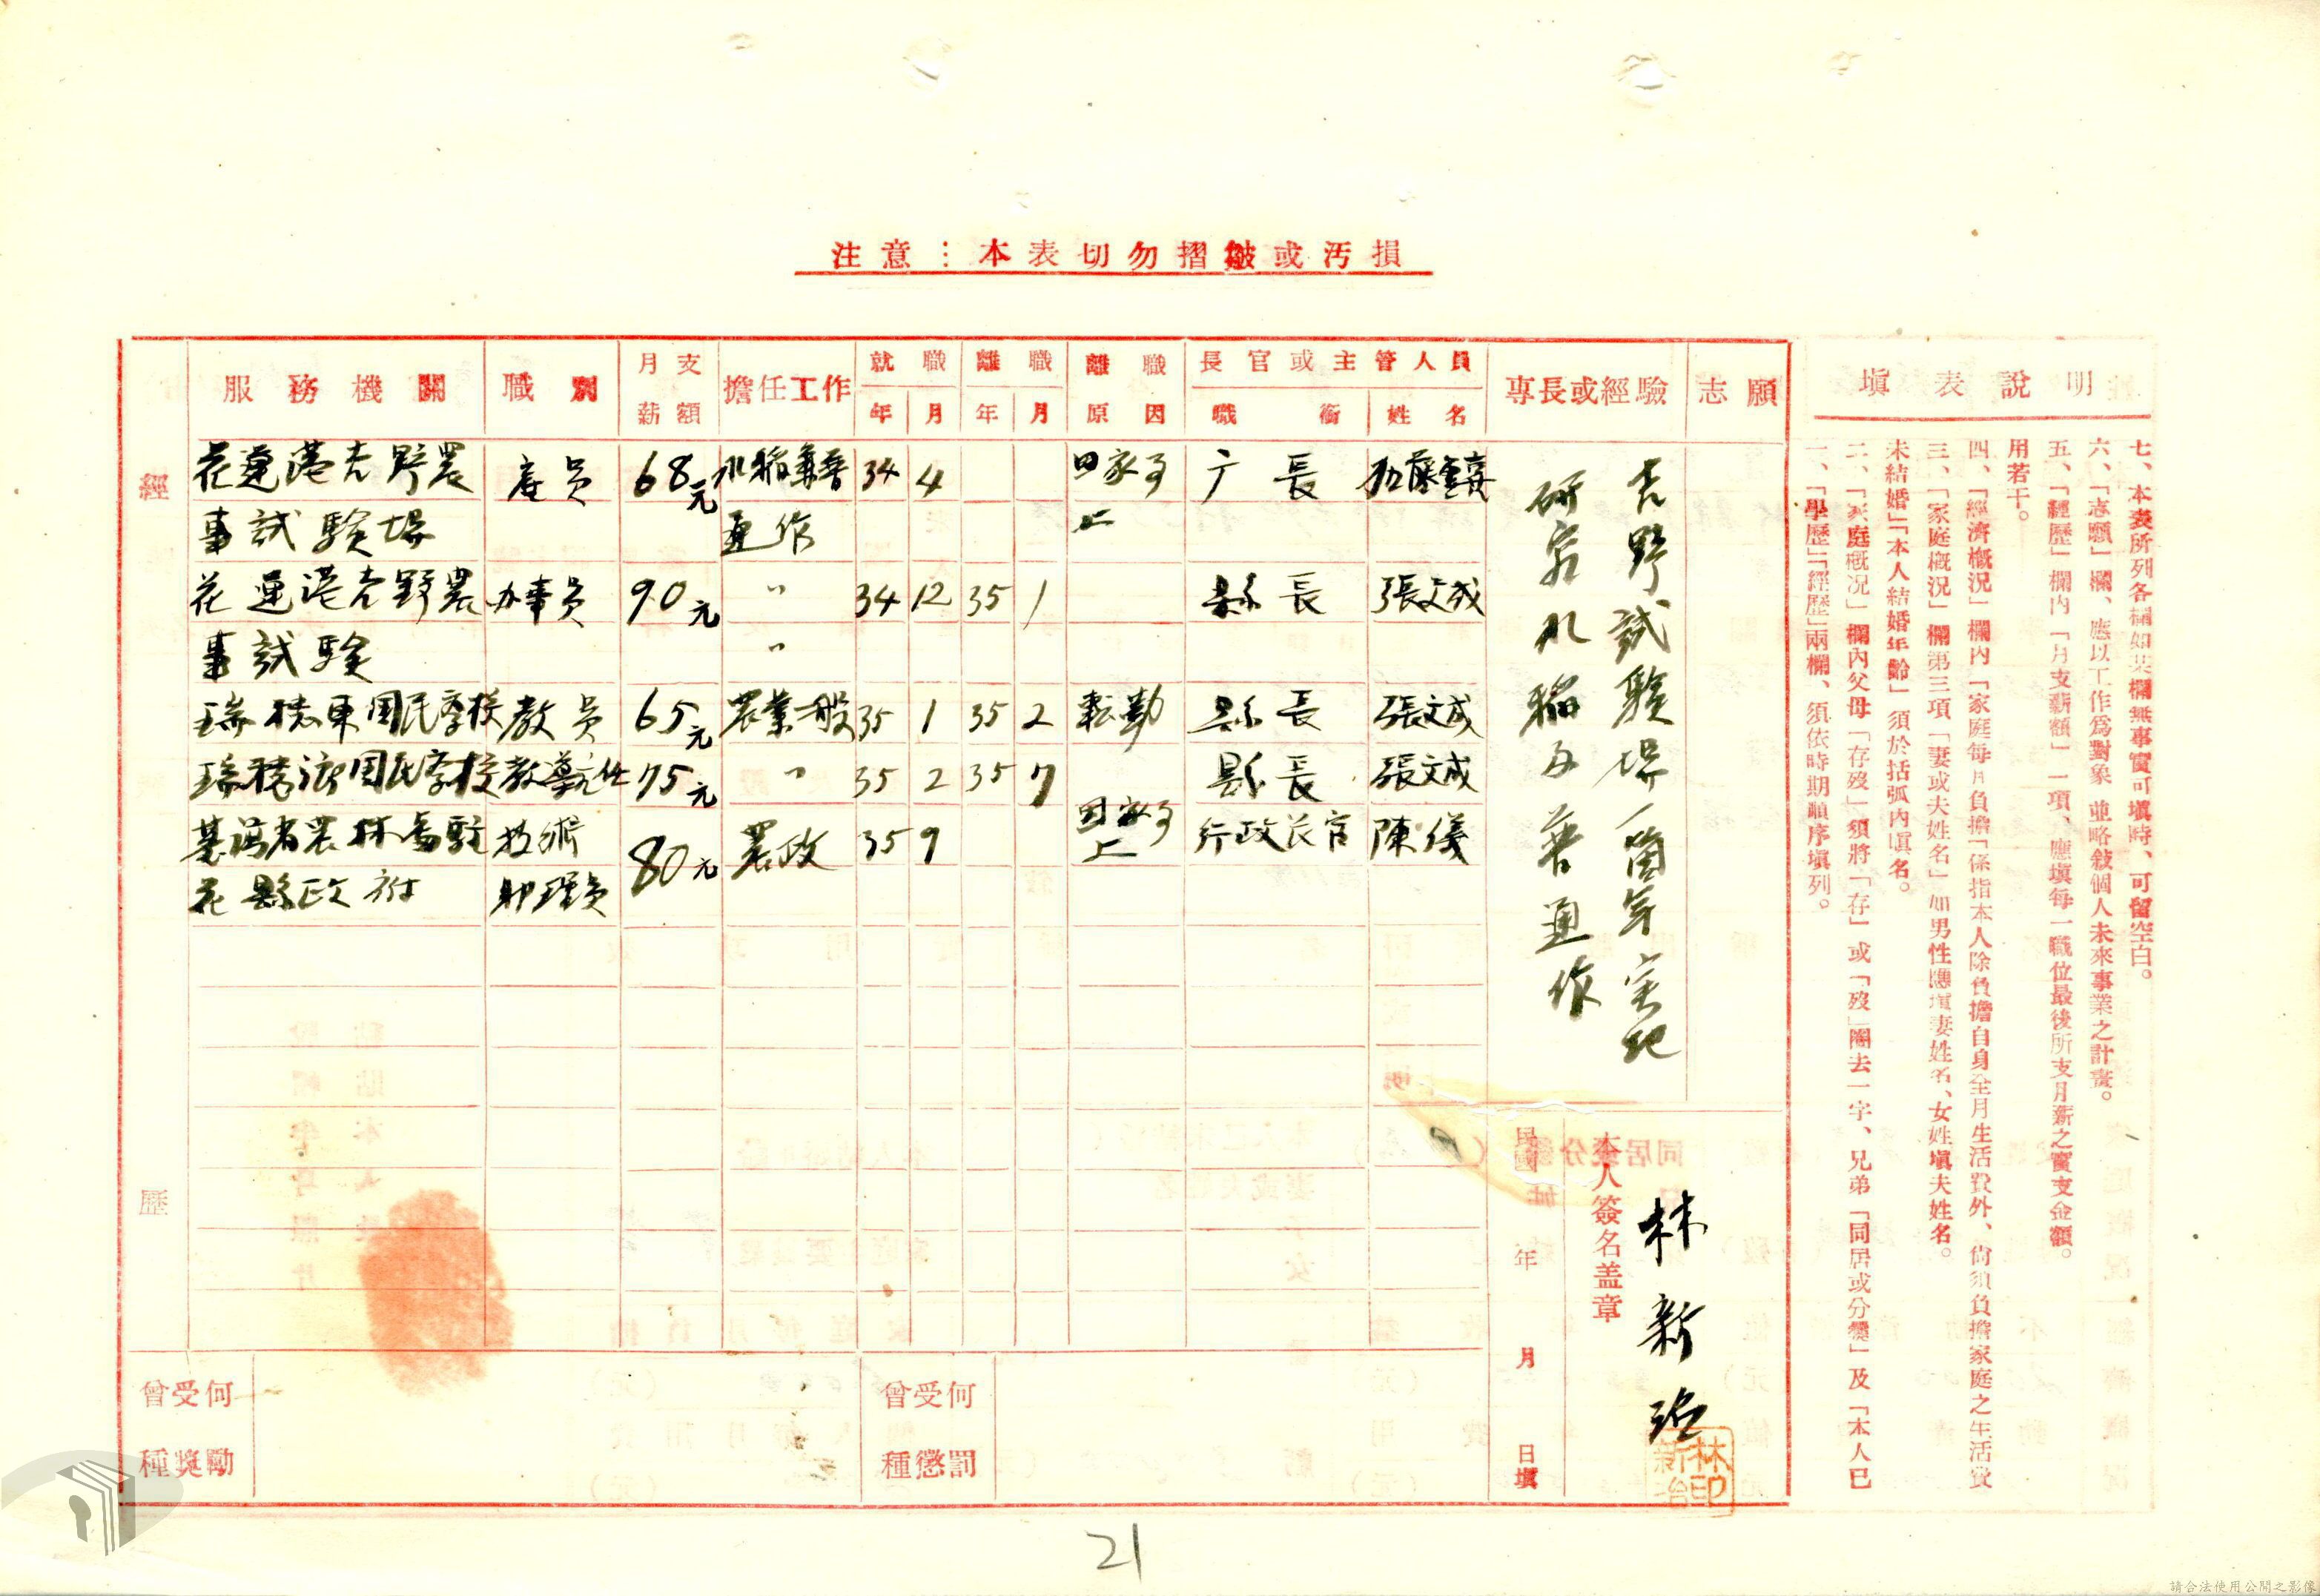 注意：本表切勿摺皺或污損
填表說明
一、「學歷」「經歷」兩欄、須依時期順序填列。
二、「家庭概況」欄內父母「存歿」須將「存」或「歿」圈去一字、兄弟「同居或分爨」及「本人已
未結婚」「本人結婚年齡」須於括弧內填名。
三、「家庭概況」欄第三項「妻或夫姓名」如男性應填妻姓名、女姓填夫姓名。
四、「經濟概況」欄內「家庭每月負擔」係指本人除負擔自身至月生活費外、尙須負擔家庭之生活費
用若干。
五、「經歷」欄內「月支薪額」一項、應填每一職位最後所支月薪之實支金額。
六、「志願」欄、應以工作爲對象並略敍個人未來事業之計畫。
七、本表所列各欄如某欄無事實可塡時、可留空白。
經歷
服務機關 職別 月支薪額 擔任工作 就職年月 離職年月 離職原因 長官或主管人員 職銜 姓名 專長或經驗 志願
花蓮港吉野農 68元 34 4 長
事試驗場
花蓮港吉野農 办事員 90元 〃 34 12 35 1 縣長 張文成
事試驗 〃
瑞穗東国民学校 教員 65元 農業一般 35 1 35 2 転勤 縣長 張文成
国民学校 教導主任 75元 〃 35 2 35 7 縣長 張文成
台湾省農林處駐 技術 80元 農政 35 9 行政长官 陳儀
花縣政府 助理員
吉野試験場一箇年実地
研究水稲及普通作
本人簽名盖章
林新治
林新治印
民國 年 月 日填
曾受何種獎勵
曾受何種懲罰
21
請合法使用公開之影像